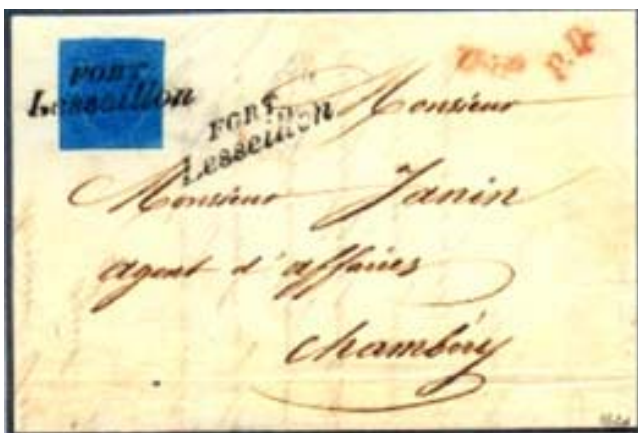 FORT
Lesseillon
FORT
Lesseillon
P.D.
Monsieur
Monsieur Janin
agent d'affaires
Chambéry